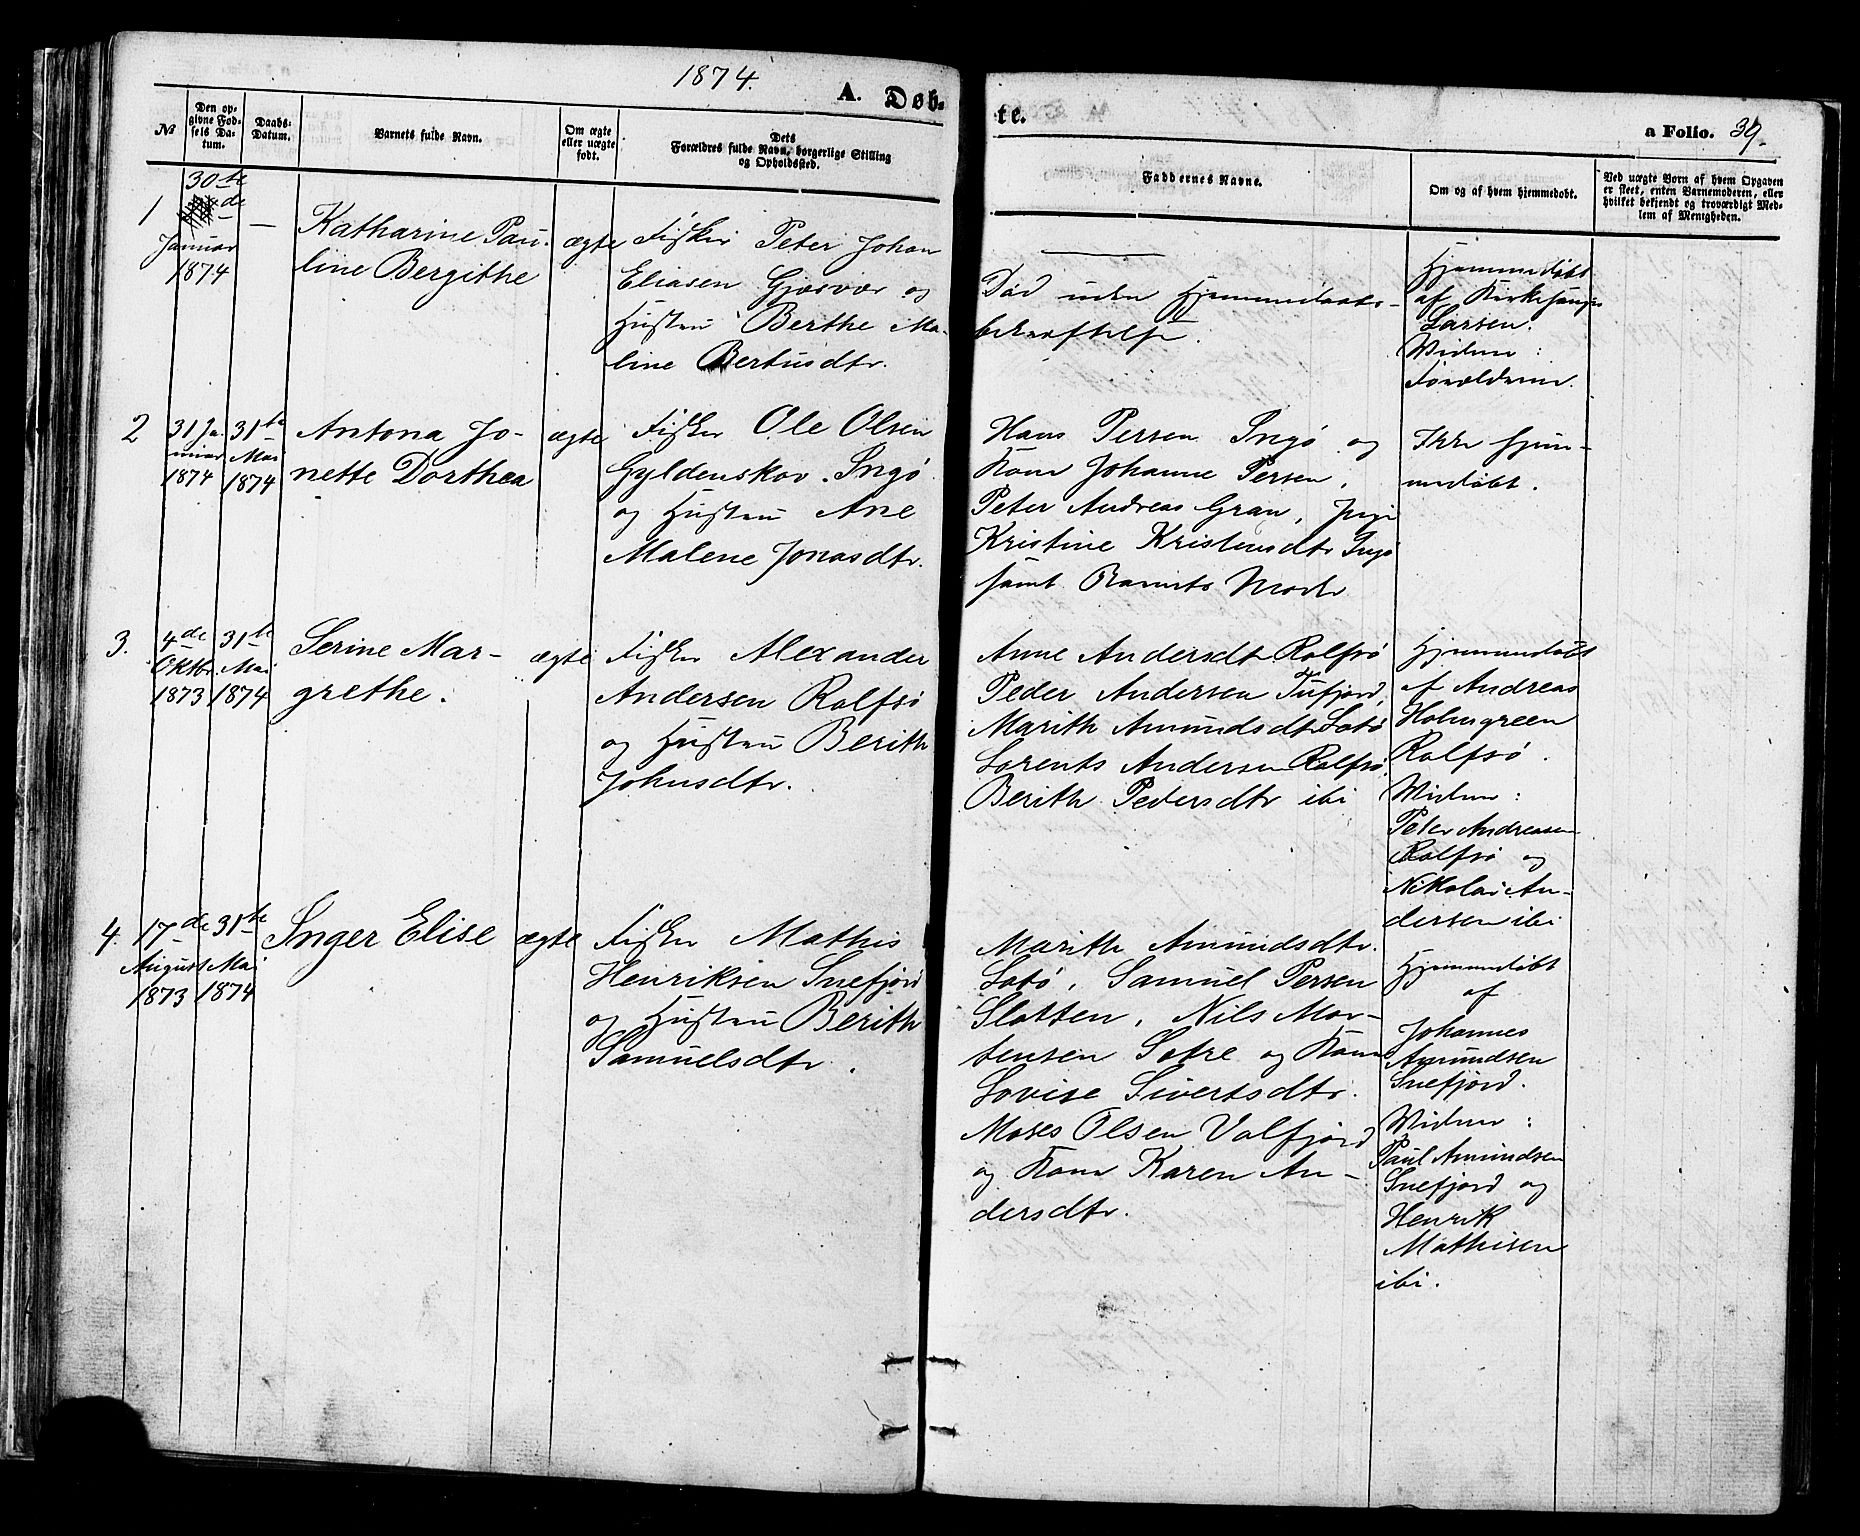 1874.
A. Døb-
te.
a Folio. 39.
№
Den op-
givne Fød-
sels Da-
tum.
Daabs-
Datum.
Barnets fulde Navn.
Om ægte
eller uægte
født.
Dets
Forældres fulde Navn, borgerlige Stilling
og Opholdssted.
Faddernes Navne.
Om og af hvem hjemmedøbt.
Ved uægte Børn af hvem Opgaven
er skeet, enten Barnemoderen, eller
hvilket bekjendt og troværdigt Med-
lem af Menigheden.
1
30te
Januar
1874
—
Katharine Pau-
line Bergithe
ægte
Fisker Peter Johan
Eliasen Gjæsvær og
Hustru Berthe Ma-
line Bertusdtr.
Død uden Hjemmedaabs-
bekræftelse.
Hjemmedøbt
af Kirkesanger
Larsen.
Vidner:
Forældrene.
2
31 Ja-
nuar
1874
31te
Mai
1874
Antona Jo-
nette Dorthea
ægte
Fisker Ole Olsen
Gyldenskov. Ingø
og Hustru Ane
Malene Jonasdtr.
Hans Persen Ingø og
Kone Johanne Persen,
Peter Andreas Gran, Inge
Kristine Kristensdtr Ingø
samt Barnets Moder
Ikke hjem-
medøbt.
3.
4de
Oktbr
1873
31te
Mai
1874
Serine Mar-
grethe.
ægte
Fisker Alexander
Andersen Rolfsø
og Hustru Berith
Johnsdtr.
Anne Andersdtr Rolfsø
Peder Andersen Tufjord,
Marith Amundsdtr Latø
Lorents Andersen Rolfsø,
Berith Pedersdtr ibi
Hjemmedøbt
af Andreas
Holmgreen
Rolfsø.
Vidner:
Peter Andreasen
Rolfsø og
Nikolai An-
dersen ibi
4.
17de
August
1873
31te
Mai
1874
Inger Elise
ægte
Fisker Mathis
Henriksen Snefjord
og Hustru Berith
Samuelsdtr.
Marith Amundsdtr.
Latø, Samuel Persen
Slotten, Nils Mor-
tensen Latre og Kone
Lovise Sivertsdtr.
Moses Olsen Valfjord
og Kone Karen An-
dersdtr.
Hjemmedøbt
af
Johannes
Amundsen
Snefjord.
Vidner:
Paul Amundsen
Snefjord og
Henrik
Mathisen
ibi.